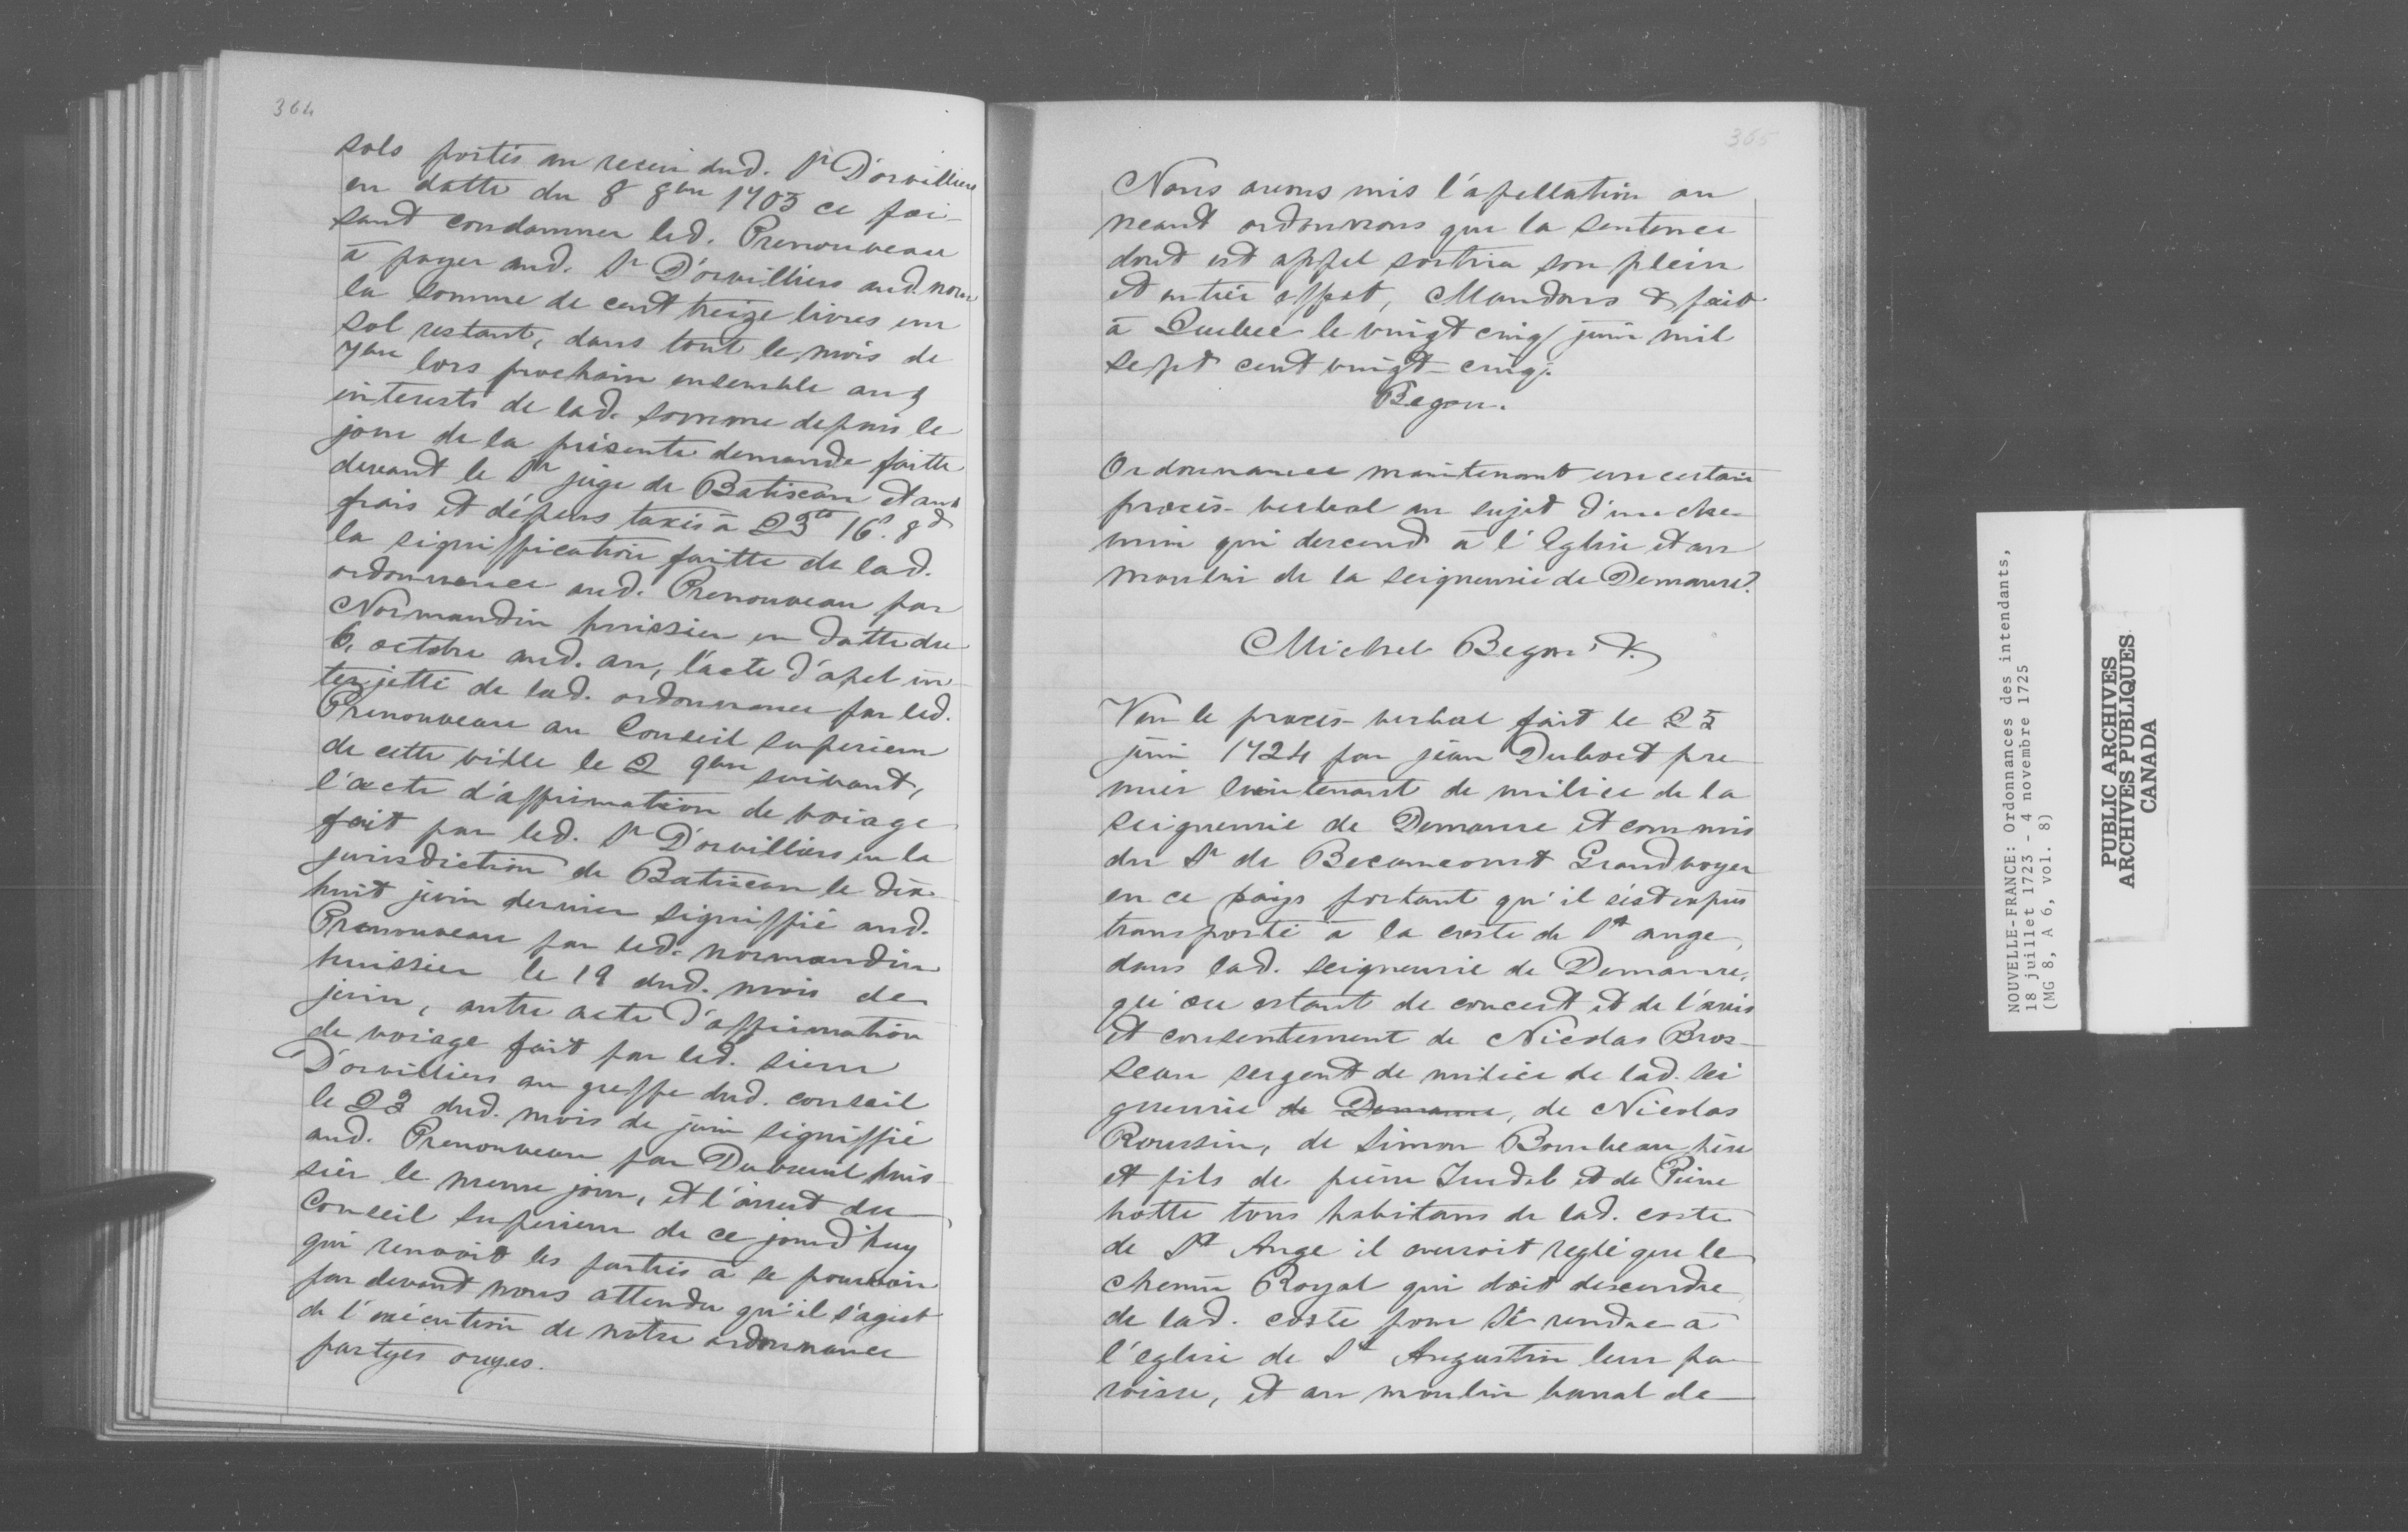 364
sols portés au receu dud. Sr D'orvilliers
en datte du 8 8bre 1703 ce fai-
sant condamner led. Prenouveau
à payer aud. Sr D'orvilliers aud. nom
la somme de cent treize livres un
sol restant, dans tout le mois de
7bre lors prochain ensemble aux
interests de lad. somme depuis le
jour de la présente demande faitte
devant le Sr juge de Batiscan et aux
frais et dépens taxés à 23tt 16s. 8d
la signiffication faitte de lad.
ordonnance aud. Prenouveau par
Normandin huissier en datte du
6, octobre aud. an, l'acte d'apel in-
terjetté de lad. ordonnance par led.
Prenouveau au Conseil superieur
de cette ville le 2 9bre suivant,
l'acte d'affirmation de voiage
fait par led. Sr D'orvilliers en la
jurisdiction de Batiscan le dix
huit juin dernier signiffié aud.
Prenouveau par led. normandin
huissier le 19 dud. mois de
juin, autre acte d'affirmation
de voiage fait par led. sieur
D'orvilliers au greffe dud. conseil
le 23 dud. mois de juin signiffié
aud. Prenouveau par Dubreuil huis-
sier le meme jour, et l'arrest du
Conseil superieur de ce jourd'huy
qui renvoit les parties à se pourvoir
par devant nous attendu qu'il s'agist
de l'exécution de notre ordonnance
partyes ouyes.
365
Nous avons mis l'apellation au
neant ordonnons que la sentence
dont est appel sortira son plein
et entier effet, Mandons & fait
à Quebec le vingt cinq juin mil
sept cent vingt-cinq.
Begon.
Ordonnance maintenant un certain
procès-verbal au sujet d'un che-
min qui descend à l'Eglise et au
moulin de la seigneurie de Demaure?
Michel Begon &.
Veu le procès-verbal fait le 25
juin 1724 par jean Duboct pre-
mier lieutenant de milice de la
seigneurie de Demaure et commis
du Sr de Becancourt Grand voyer
en ce pays portant qu'il s'est exprès
transporté à la coste de St ange,
dans lad. seigneurie de Demaure,
qu'ou estant de concert et de l'avis
et consentement de Nicolas Bros-
seau sergent de milice de lad. sei
gneurie de Demaure, de Nicolas
Roussin, de Simon Bombeau père
et fils de pierre Trudel et de Pierre
hotte tous habitans de lad. coste
de St Ange il auroit reglé que le
chemin Royal qui doit descendre
de lad. coste pour se rendre à
l'eglise de St Augustin leur pa-
roisse, et au moulin banal de
NOUVELLE-FRANCE: Ordonnances des intendants,
18 juillet 1723 - 4 novembre 1725
(MG 8, A 6, vol. 8)
PUBLIC ARCHIVES
ARCHIVES PUBLIQUES
CANADA